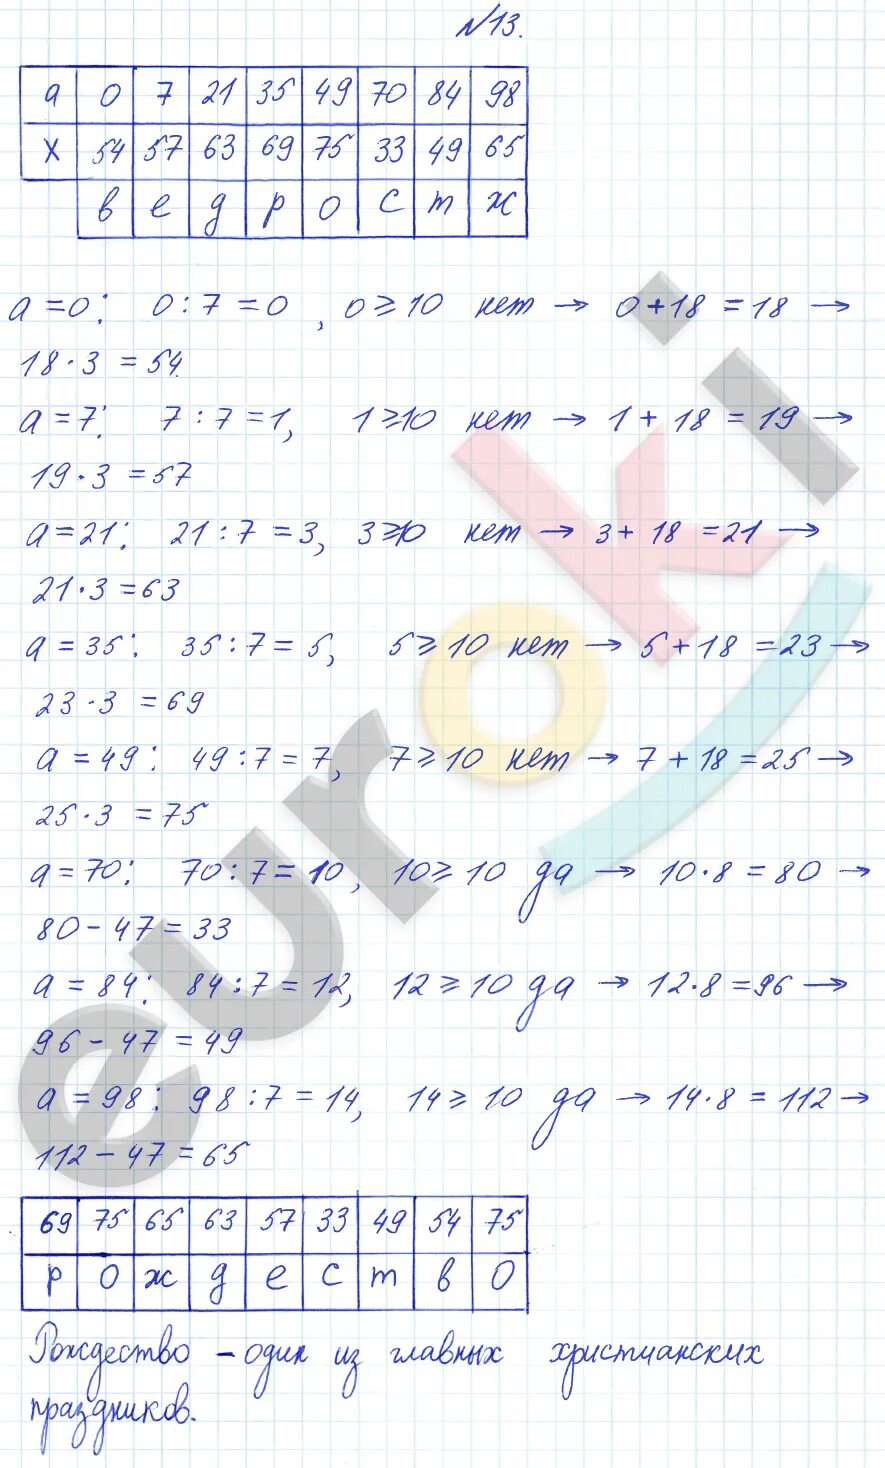 №13.
а 0 7 21 35 49 70 84 98
х 54 57 63 69 75 33 49 65
в е д р о с т ж
а = 0: 0 : 7 = 0 , 0 ⩾ 10 нет → 0 + 18 = 18 →
18 · 3 = 54.
а = 7: 7 : 7 = 1, 1 ⩾ 10 нет → 1 + 18 = 19 →
19 · 3 = 57
а = 21: 21 : 7 = 3, 3 ⩾ 10 нет → 3 + 18 = 21 →
21 · 3 = 63
а = 35: 35 : 7 = 5, 5 ⩾ 10 нет → 5 + 18 = 23 →
23 · 3 = 69
а = 49: 49 : 7 = 7, 7 ⩾ 10 нет → 7 + 18 = 25 →
25 · 3 = 75
а = 70: 70 : 7 = 10, 10 ⩾ 10 да → 10 · 8 = 80 →
80 - 47 = 33
а = 84: 84 : 7 = 12, 12 ⩾ 10 да → 12 · 8 = 96 →
96 - 47 = 49
а = 98: 98 : 7 = 14, 14 ⩾ 10 да → 14 · 8 = 112 →
112 - 47 = 65
69 75 65 63 57 33 49 54 75
р о ж д е с т в о
Рождество - один из главных христианских
праздников.
euroki